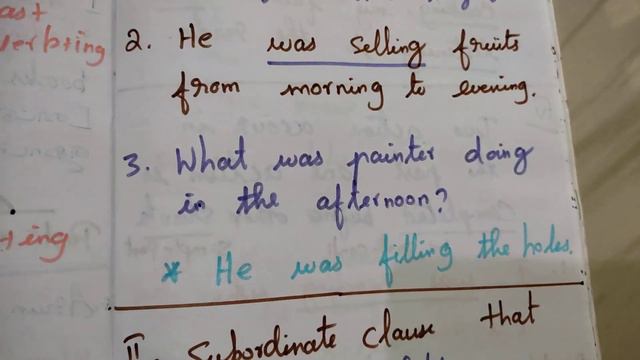 2. He was selling fruits
from morning to evening.
3. What was painter doing
in the afternoon?
* He was filling the holes.
II. Subordinate clause that
ting